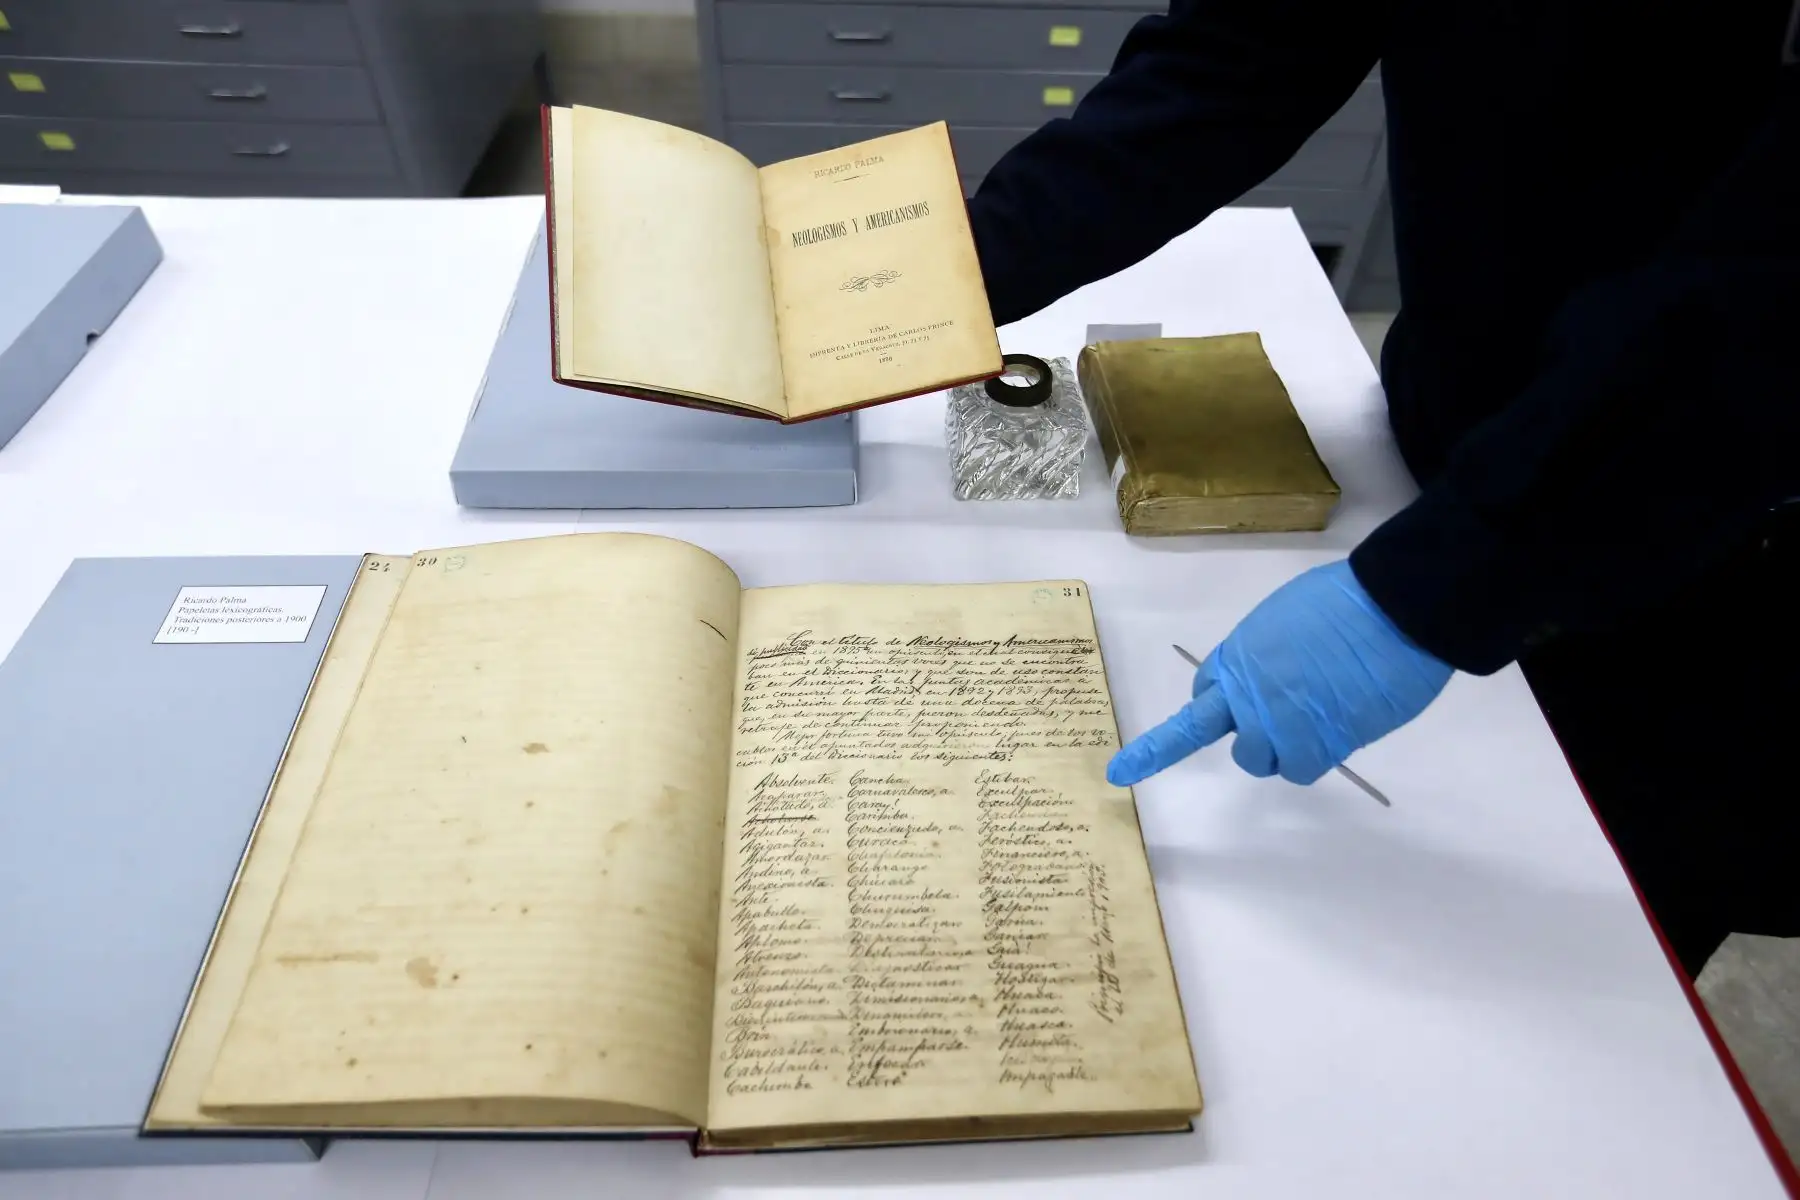 RICARDO PALMA
NEOLOGISMOS Y AMERICANISMOS
LIMA
IMPRENTA Y LIBRERÍA DE CARLOS PRINCE
CALLE DE LA VERACRUZ,
Ricardo Palma
Papeletas lexicográficas.
Tradiciones posteriores a 1900
[190-]
24
30
31
Con el título de Neologismos y Americanismos
dí publicidad en 1895 un opúsculo, en el cual consigné
poco más de quinientas voces que no se encontra
ban en el Diccionario, y que son de uso constan
te en América. En las juntas académicas a
que concurrí en Madrid, en 1892 y 1893, propuse
la admisión hasta de una docena de palabras,
que, en su mayor parte, fueron desdeñadas, y me
retraje de continuar proponiendo.
Mejor fortuna tuvo mi opúsculo, pues de los vo-
cablos en él apuntados adquirieron lugar en la edi
ción 13ª del Diccionario los siguientes:
Absolvente. Cancha. Estibar.
Acaparar. Carnavalesco, a. Exculpar.
Achotado, a. Caray! Exculpación
Acholarse Carimba. Fachenda
Adulón, a. Concienzudo, a. Fachendoso, a.
Agigantar. Curaca.
Amordazar Chafalonía.
Andino, a. Charango
Anexionista. Chúcaro Fusionista
Ante. Churumbela. Fusilamiento
Apabullo. Chuquisa. Galpón
Apacheta. Democratizar Garúa.
Aplomo. Depreciar. Garuar.
Dictaminar Hostigar.
Autonomista Diagnosticar Guagua.
Barchilón, a. Dimisionario, a. Huaca.
Dinamitero, a Huaco.
Boa Embrionario, a. Huasca.
Burocrático, a. Empamparse.
Cabildante. Enfocada
Cachimba Impagable.